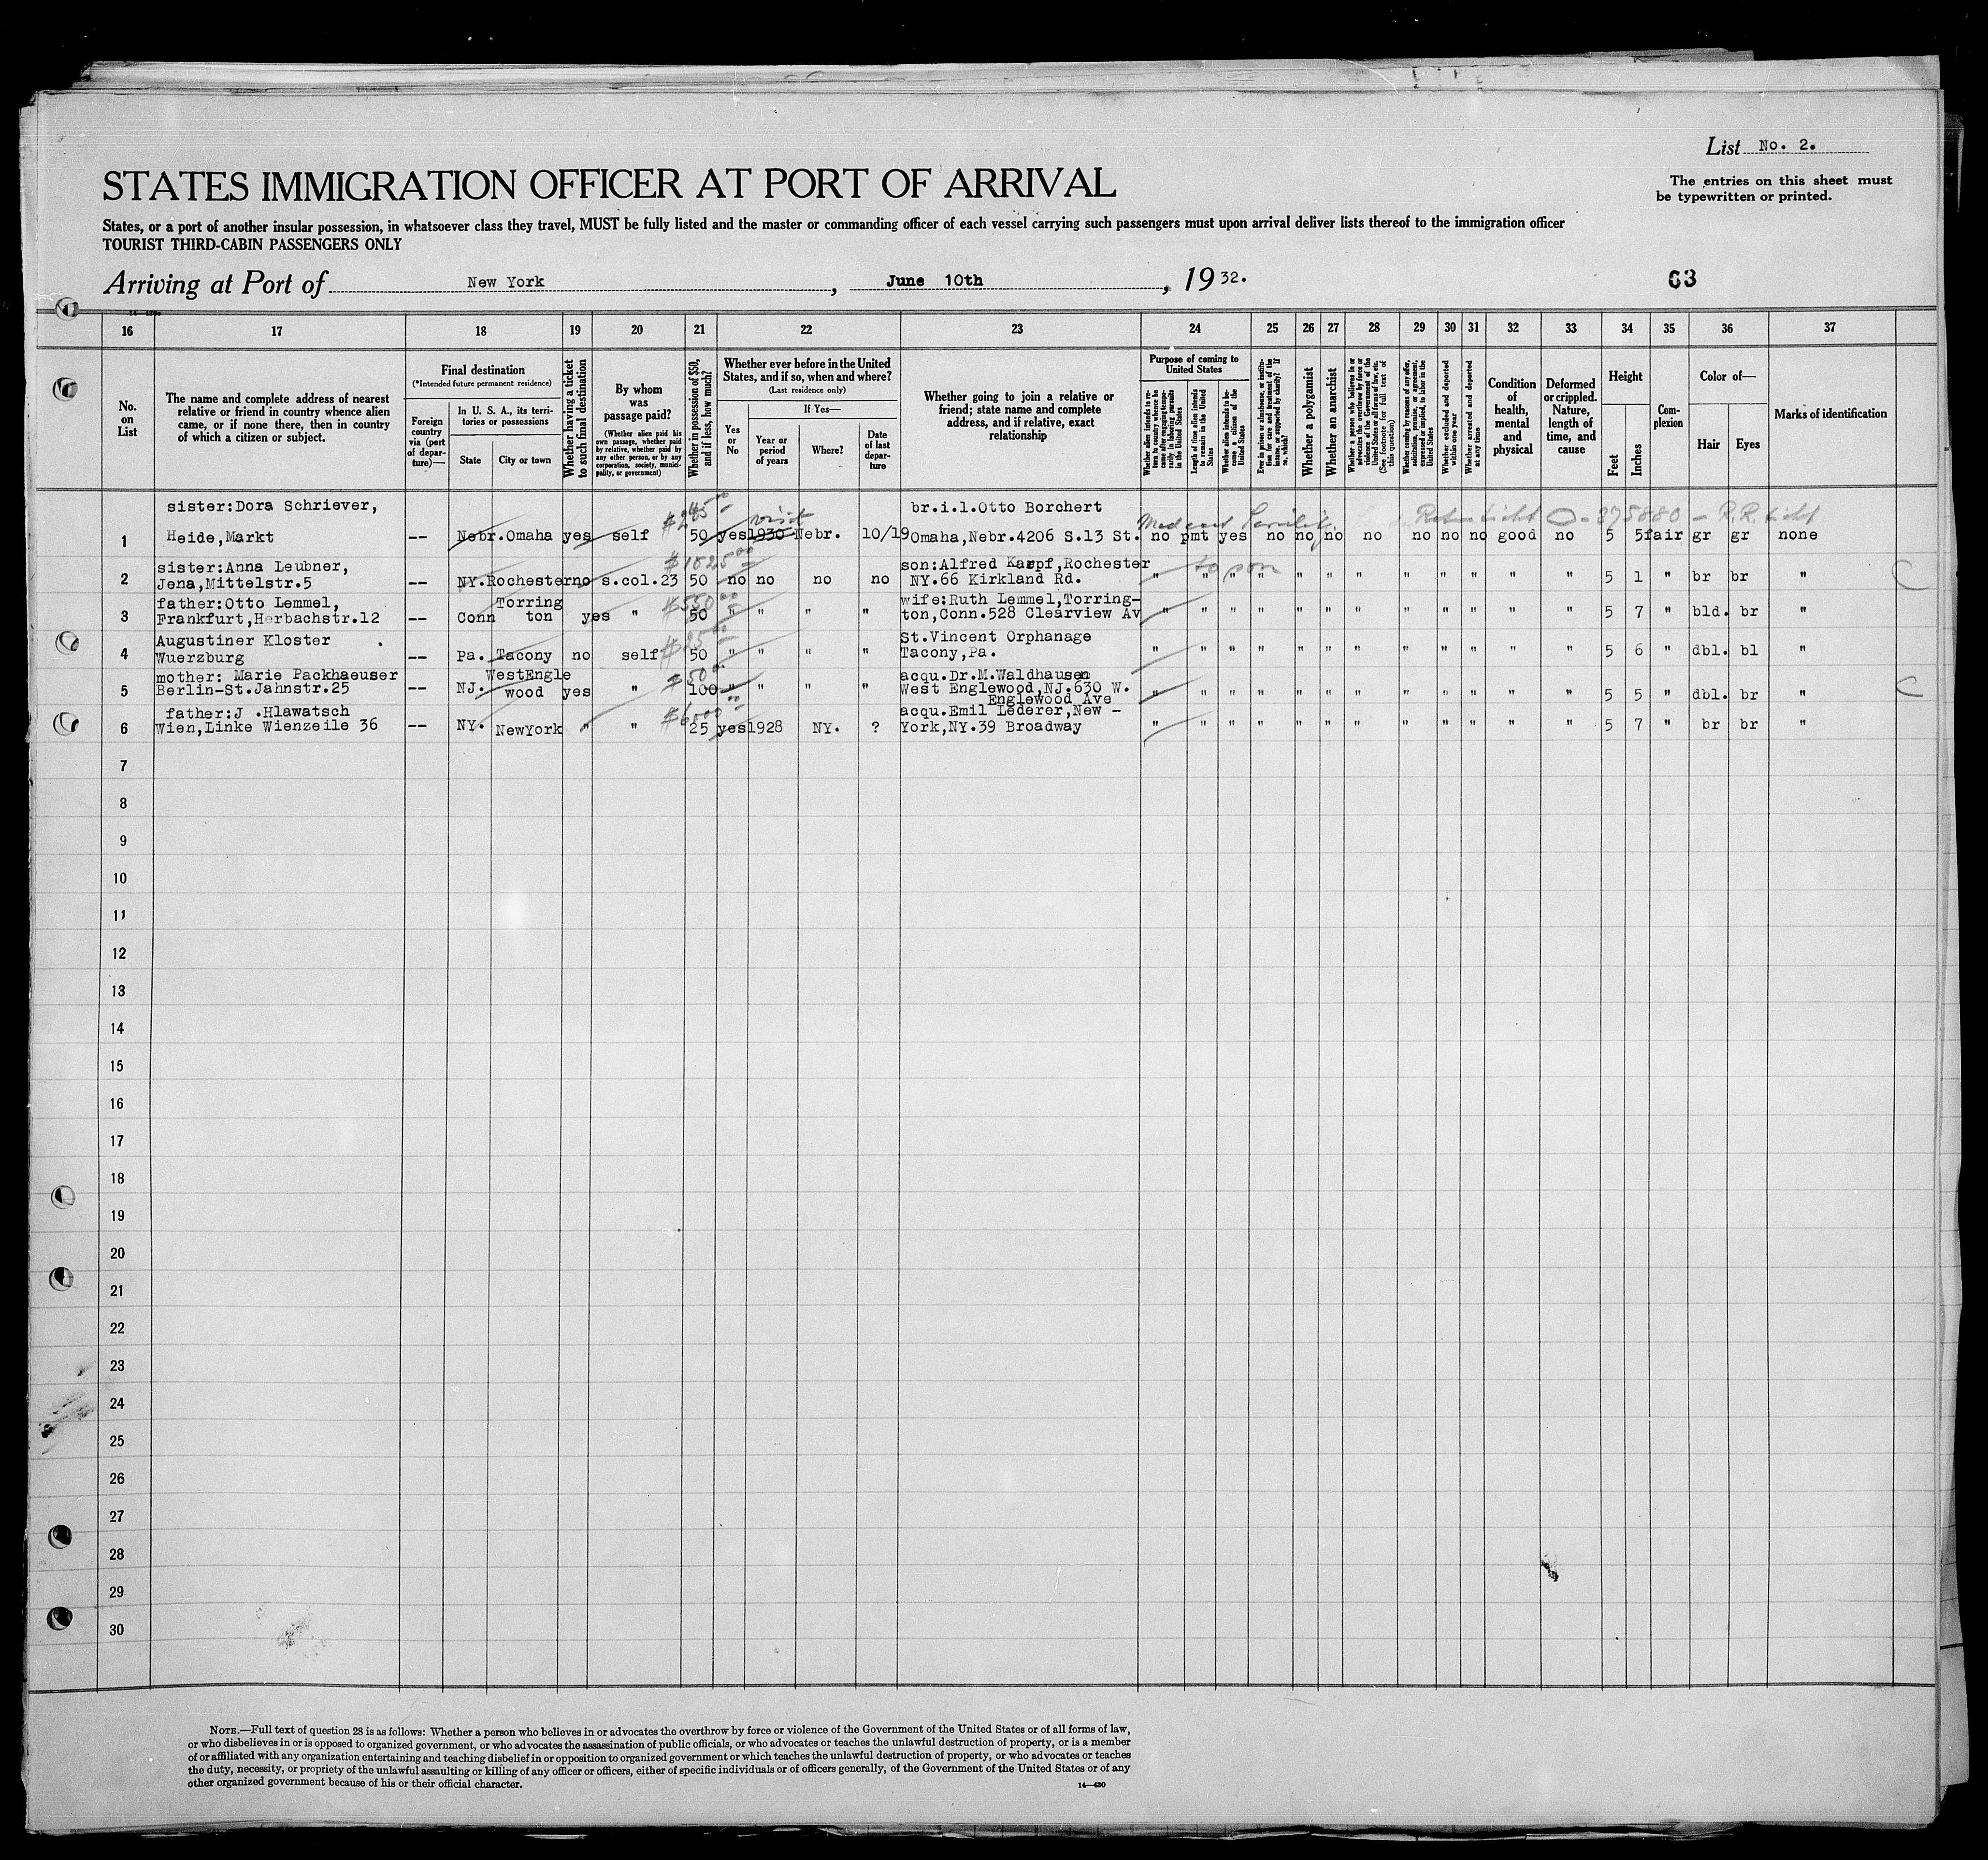 List No. 2.
STATES IMMIGRATION OFFICER AT PORT OF ARRIVAL
The entries on this sheet must
be typewritten or printed.
States, or a port of another insular possession, in whatsoever class they travel, MUST be fully listed and the master or commanding officer of each vessel carrying such passengers must upon arrival deliver lists thereof to the immigration officer
TOURIST THIRD-CABIN PASSENGERS ONLY
Arriving at Port of New York, June 10th, 1932.
63
16 17 18 19 20 21 22 23 24 25 26 27 28 29 30 31 32 33 34 35 36 37
No. on List
The name and complete address of nearest
relative or friend in country whence alien
came, or if none there, then in country
of which a citizen or subject.
Final destination
(*Intended future permanent residence)
Foreign country via (port of departure)—
In U. S. A., its territories or possessions
State
City or town
Whether having a ticket to such final destination
By whom was passage paid?
(Whether alien paid his own passage, whether paid by relative, whether paid by any other person, or by any corporation, society, municipality, or government)
Whether in possession of $50, and if less, how much?
Whether ever before in the United States, and if so, when and where?
(Last residence only)
Yes or No
If Yes—
Year or period of years
Where?
Date of last departure
Whether going to join a relative or
friend; state name and complete
address, and if relative, exact
relationship
Purpose of coming to United States
Whether alien intends to return to country whence he came after engaging temporarily in laboring pursuits in the United States
Length of time alien intends to remain in the United States
Whether alien intends to become a citizen of the United States
Ever in prison or almshouse, or institution for care and treatment of the insane, or supported by charity? If so, which?
Whether a polygamist
Whether an anarchist
Whether a person who believes in or advocates the overthrow by force or violence of the Government of the United States or all forms of law, etc. (See footnote for full text of this question)
Whether coming by reasons of any offer, solicitation, promise, or agreement, expressed or implied, to labor in the United States
Whether excluded and deported within one year
Whether arrested and deported at any time
Condition of health, mental and physical
Deformed or crippled. Nature, length of time, and cause
Height
Feet
Inches
Complexion
Color of—
Hair
Eyes
Marks of identification
sister:Dora Schriever, $245 visit br.i.l.Otto Borchert
1 Heide,Markt -- Nebr.Omaha yes self 50 yes 1930 Nebr. 10/19 Omaha,Nebr.4206 S.13 St. no pmt yes no no no no no no no good no 5 5 fair gr gr none
sister:Anna Leubner, $1525 son:Alfred Karpf,Rochester
2 Jena,Mittelstr.5 -- NY.Rochester no s.col.23 50 no no no no NY.66 Kirkland Rd. " " " " " " " " " " " " 5 1 " br br "
father:Otto Lemmel, Torring $550 wife:Ruth Lemmel,Torring-
3 Frankfurt,Herbachstr.12 -- Conn ton yes " 50 " " " " ton,Conn.528 Clearview Av " " " " " " " " " " " " 5 7 " bld. br "
Augustiner Kloster $25 St.Vincent Orphanage
4 Wuerzburg -- Pa. Tacony no self 50 " " " " Tacony,Pa. " " " " " " " " " " " " 5 6 " dbl. bl "
mother: Marie Packhaeuser WestEngle $50 acqu.Dr.M.Waldhausen
5 Berlin-St.Jahnstr.25 -- NJ. wood yes " 100 " " " " West Englewood,NJ.630 W. " " " " " " " " " " " " 5 5 " dbl. br "
Englewood Ave
father:J .Hlawatsch acqu.Emil Lederer,New -
6 Wien,Linke Wienzeile 36 -- NY. NewYork " " 25 yes 1928 NY. ? York,NY.39 Broadway " " " " " " " " " " " " 5 7 " br br "
7
8
9
10
11
12
13
14
15
16
17
18
19
20
21
22
23
24
25
26
27
28
29
30
NOTE.—Full text of question 28 is as follows: Whether a person who believes in or advocates the overthrow by force or violence of the Government of the United States or of all forms of law,
or who disbelieves in or is opposed to organized government, or who advocates the assassination of public officials, or who advocates or teaches the unlawful destruction of property, or is a member
of or affiliated with any organization entertaining and teaching disbelief in or opposition to organized government or which teaches the unlawful destruction of property, or who advocates or teaches
the duty, necessity, or propriety of the unlawful assaulting or killing of any officer or officers, either of specific individuals or of officers generally, of the Government of the United States or of any
other organized government because of his or their official character.
14—430